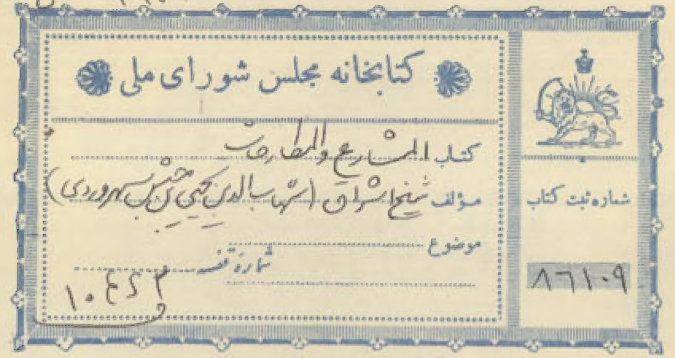 کتابخانه مجلس شورای ملی
کتاب المشارع والمطارحات
مؤلف شیخ اشراق (شهاب‌الدین یحیی بن حبش سهروردی)
موضوع
شمارهٔ قفسه
شماره ثبت کتاب
۸۶۱۰۹